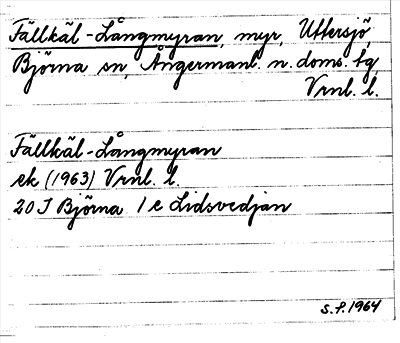 Fällkäl-Långmyran, myr, Uttersjö,
Björna sn, Ångermanl. n. doms. tg
Vrnl. l.
Fällkäl-Långmyran
ek (1963) Vrnl. l.
20 J Björna 1 e Lidsvedjan
S.F. 1964